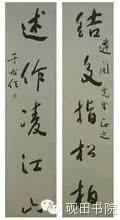 结交指松柏
遗闻先生正之
述作凌江山
于右任
砚田书院